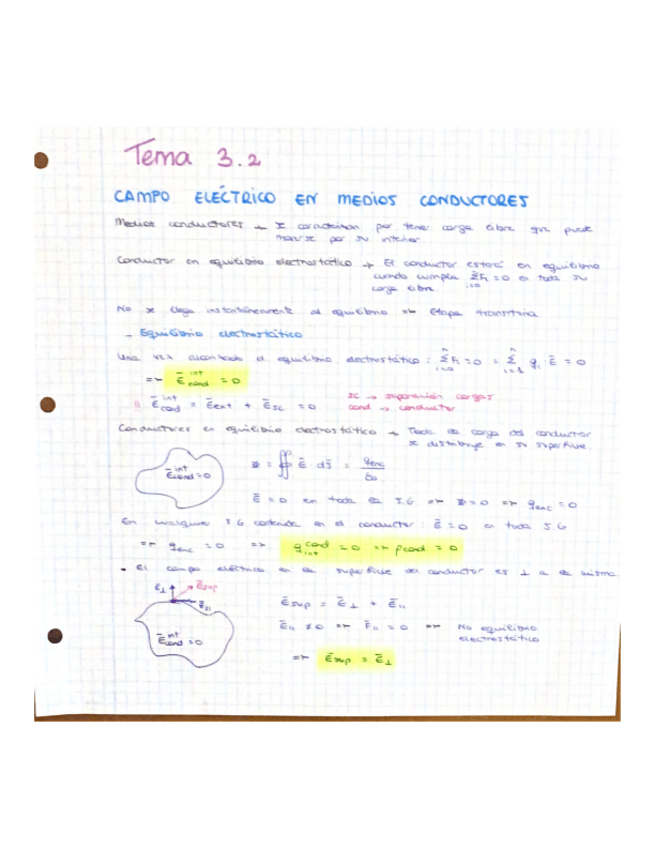 Tema 3.2
CAMPO ELÉCTRICO EN MEDIOS CONDUCTORES
Medios conductores → se caracterizan por tener carga libre que puede
moverse por su interior.
Conductor en equilibrio electrostático → El conductor estará en equilibrio
cuando cumpla Σ F̄i = 0 en toda su
n
i=0
carga libre.
No se llega instantáneamente al equilibrio => Etapa transitoria
- Equilibrio electrostático
Una vez alcanzado el equilibrio electrostático: Σ F̄i = 0 = Σ qi Ē = 0
n n
i=0 i=1
=> Ē int cond = 0
Ē int cond = Ē ext + Ē sc = 0
sc → separación cargas
cond → conductor
Conductores en equilibrio electrostático → Toda la carga del conductor
se distribuye en su superficie.
Ē int cond = 0
Φ = ∯ Ē ds̄ = qenc / ε0
Ē = 0 en toda la S.G => Φ = 0 => qenc = 0
En cualquier S.G contenida en el conductor: Ē = 0 en toda S.G
=> qenc = 0 => q cond int = 0 => ρcond = 0
• El campo eléctrico en la superficie del conductor es ⊥ a la misma
E⊥ Ēsup
Ē//
Ē int cond = 0
Ēsup = Ē⊥ + Ē//
Ē// ≠ 0 => F̄// = 0 => No equilibrio
electrostático
=> Ēsup = Ē⊥